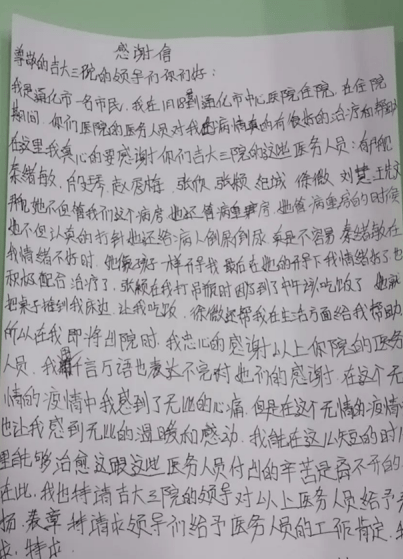 感谢信
尊敬的吉大三院的领导们你们好：
我是通化市一名市民，我在1月18到通化市中心医院住院，在住院
期间，你们医院的医务人员对我的病情真的有很好的治疗和帮助
在这里我真心的要感谢你们吉大三院的这些医务人员：
秦绪敏，张欣 张颖 纪城 徐微 刘慧
她不但管我们这个病房，她还管病重房，她管病重房的时候
她不但认真的打针她还给病人倒尿倒尿真是不容易秦绪敏在
我情绪不好时，她像孩子一样开导我最后在她的开导下我情绪好了也
积极配合治疗了，张颖在我打吊瓶时因为到了中午该吃饭了她就
把桌子推到我床边，让我吃饭，徐微还帮我在生活方面给我帮助
所以在我即将出院时，我忠心的感谢以上你院的医务
人员，我千言万语也表达不完对她们的感谢，在这个无
情的疫情中我感到了无比的心痛，但是在这个无情的疫情
也让我感到无比的温暖和感动，我能在这么短的时
里能够治愈这跟这些医务人员付出的辛苦是离不开的
在此，我也特请吉大三院的领导对以上医务人员给予
扬，表章，特请求领导们给予医务人员的工作肯定，
求，特求